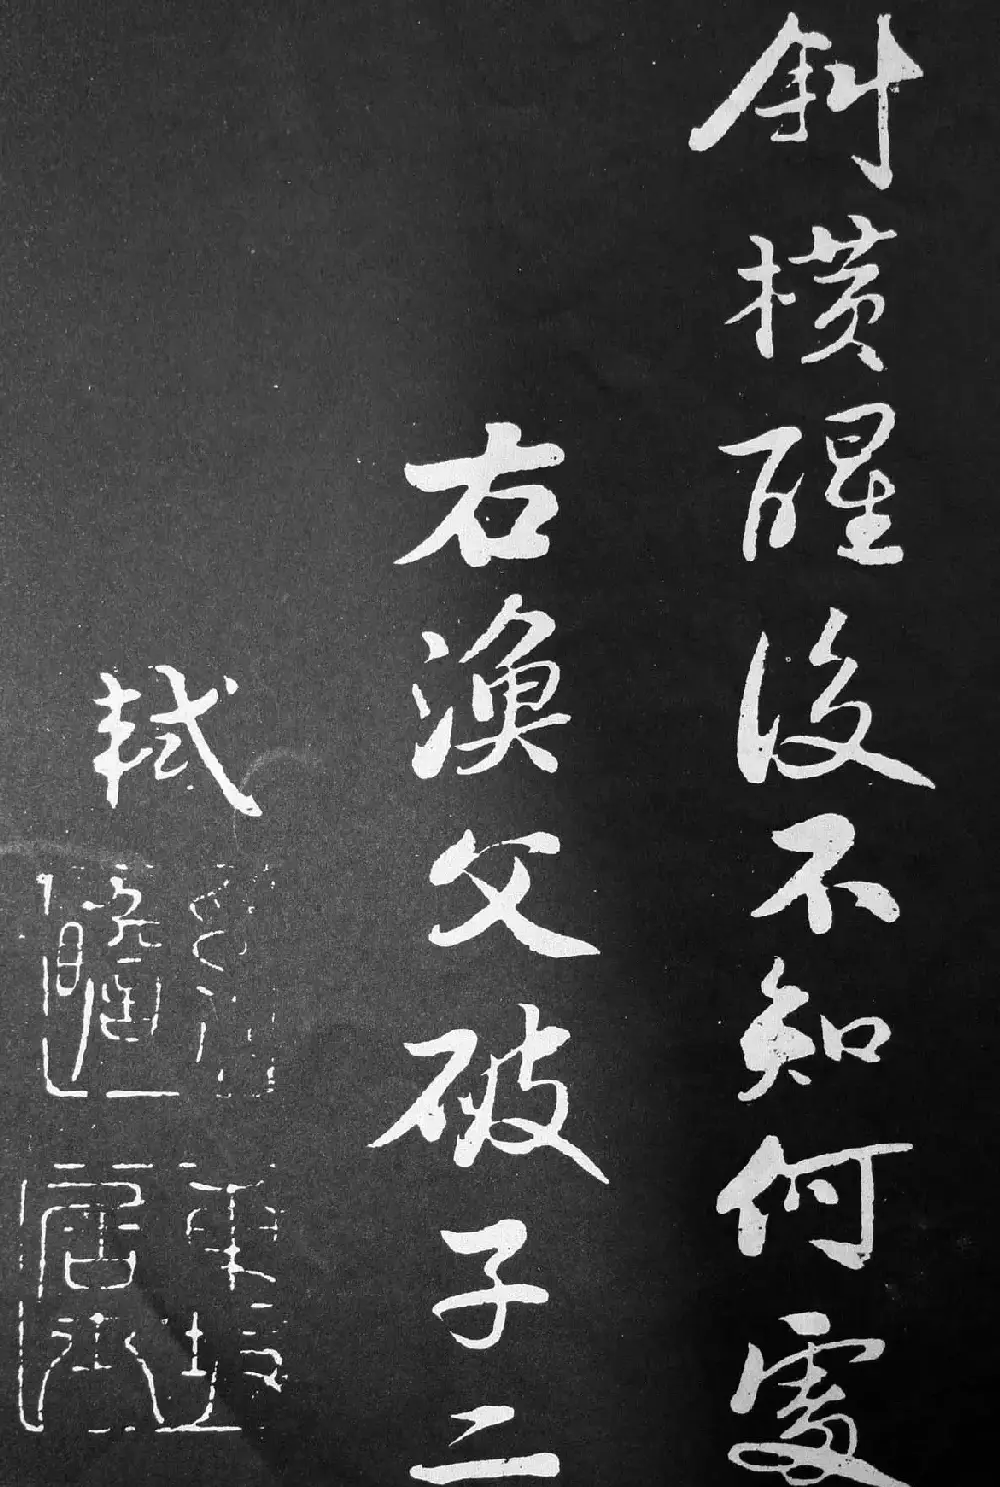 斜橫醒後不知何處
右漁父破子二
軾
東坡居士